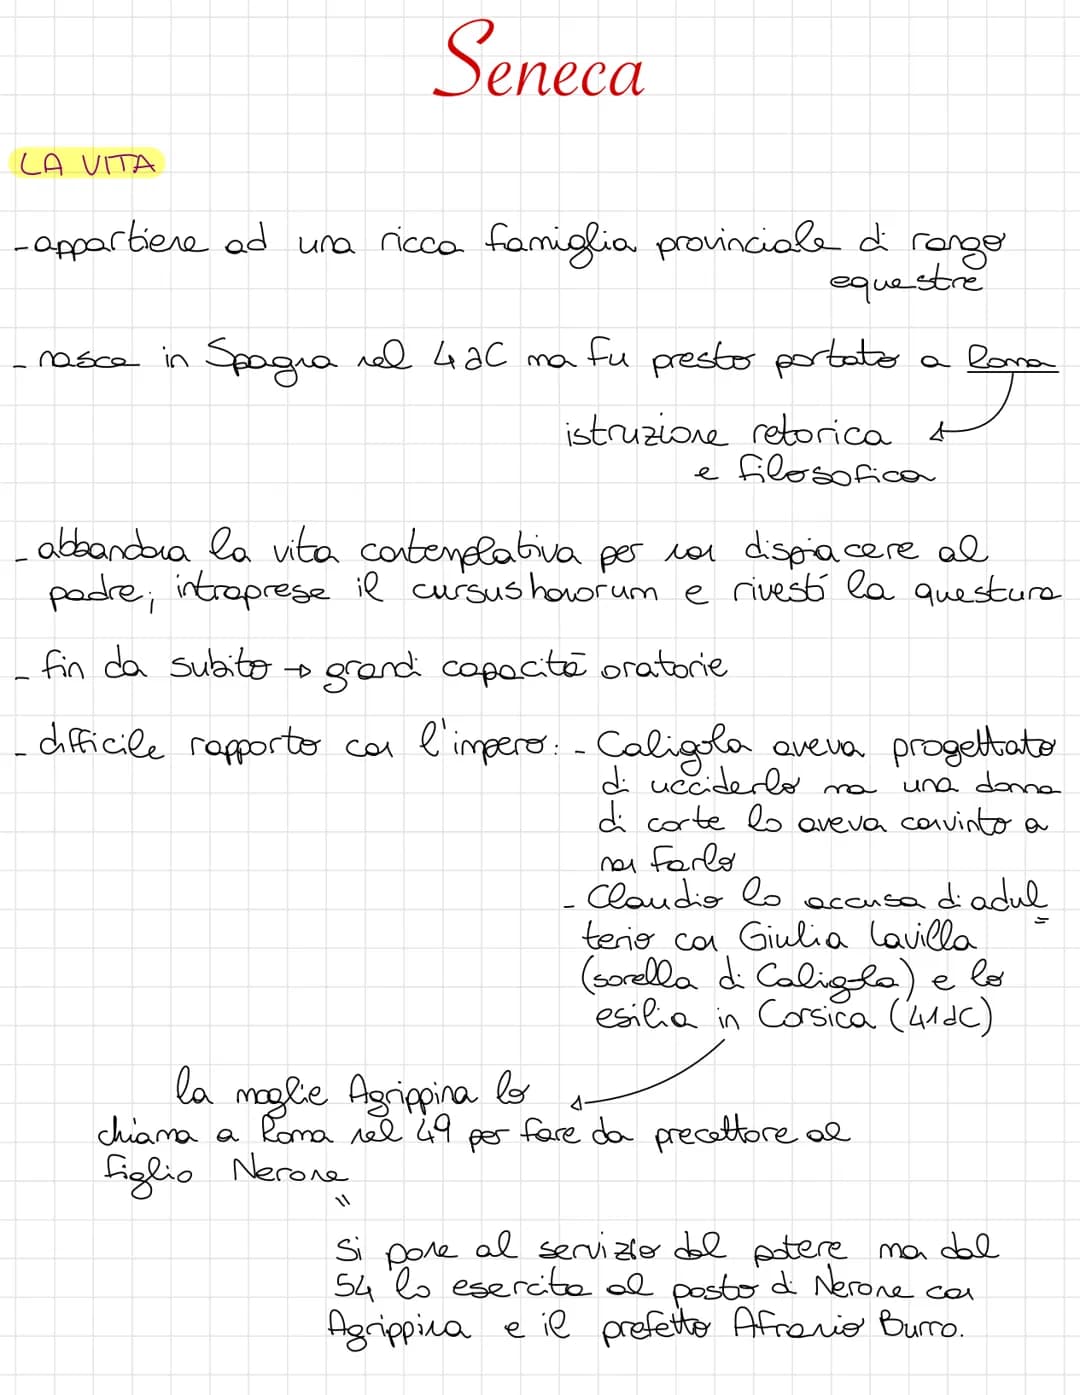 Seneca
LA VITA
- appartiene ad una ricca famiglia provinciale di rango
equestre
- nasce in Spagna nel 4 aC ma fu presto portato a Roma
istruzione retorica
e filosofica
- abbandona la vita contemplativa per non dispiacere al
padre; intraprese il cursus honorum e rivestí la questura
- fin da subito → grandi capacità oratorie
- difficile rapporto con l'impero: - Caligola aveva progettato
di ucciderlo ma una donna
di corte lo aveva convinto a
non farlo
- Claudio lo accusa di adul
terio con Giulia Lavilla
(sorella di Caligola) e lo
esilia in Corsica (41dC)
la moglie Agrippina lo
chiama a Roma nel 49 per fare da precettore al
figlio Nerone
"
Si pone al servizio del potere ma dal
54 lo esercita al posto di Nerone con
Agrippina e il prefetto Afranio Burro.